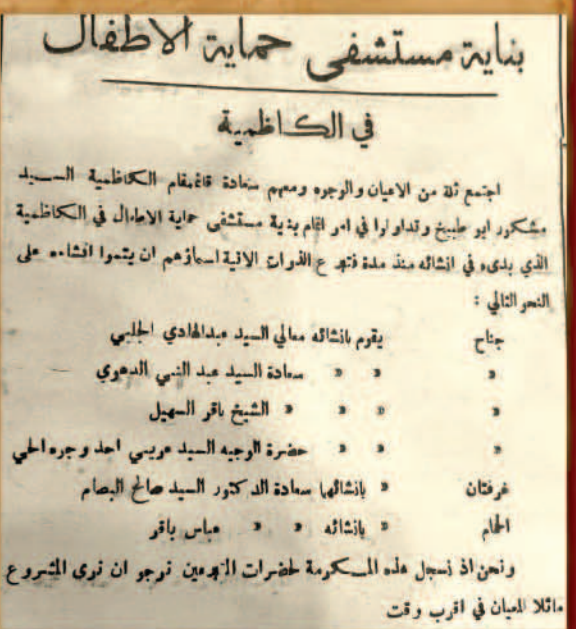 بناية مستشفى حماية الاطفال
في الكاظمية
اجتمع ثلة من الاعيان والوجوه ومعهم سعادة قائمقام الكاظمية السيد
مشكور ابو طبيخ وتداولوا في امر اتمام بناية مستشفى حماية الاطفال في الكاظمية
الذي بدىء في انشائه منذ مدة فتبرع الذوات الاتية اسماؤهم ان يتموا انشاءه على
النحو التالي :
جناح يقوم بانشائه معالي السيد عبدالهادي الجلبي
» » » سعادة السيد عبد النبي الدهوي
» » » » الشيخ باقر السهيل
» » » حضرة الوجيه السيد احد وجوه الحي
غرفتان » بانشائهما سعادة الدكتور السيد صالح البصام
الحمام » بانشائه » » عباس باقر
ونحن اذ نسجل هذه المكرمة لحضرات المتبرعين نرجو ان نرى المشروع
ماثلا للعيان في اقرب وقت